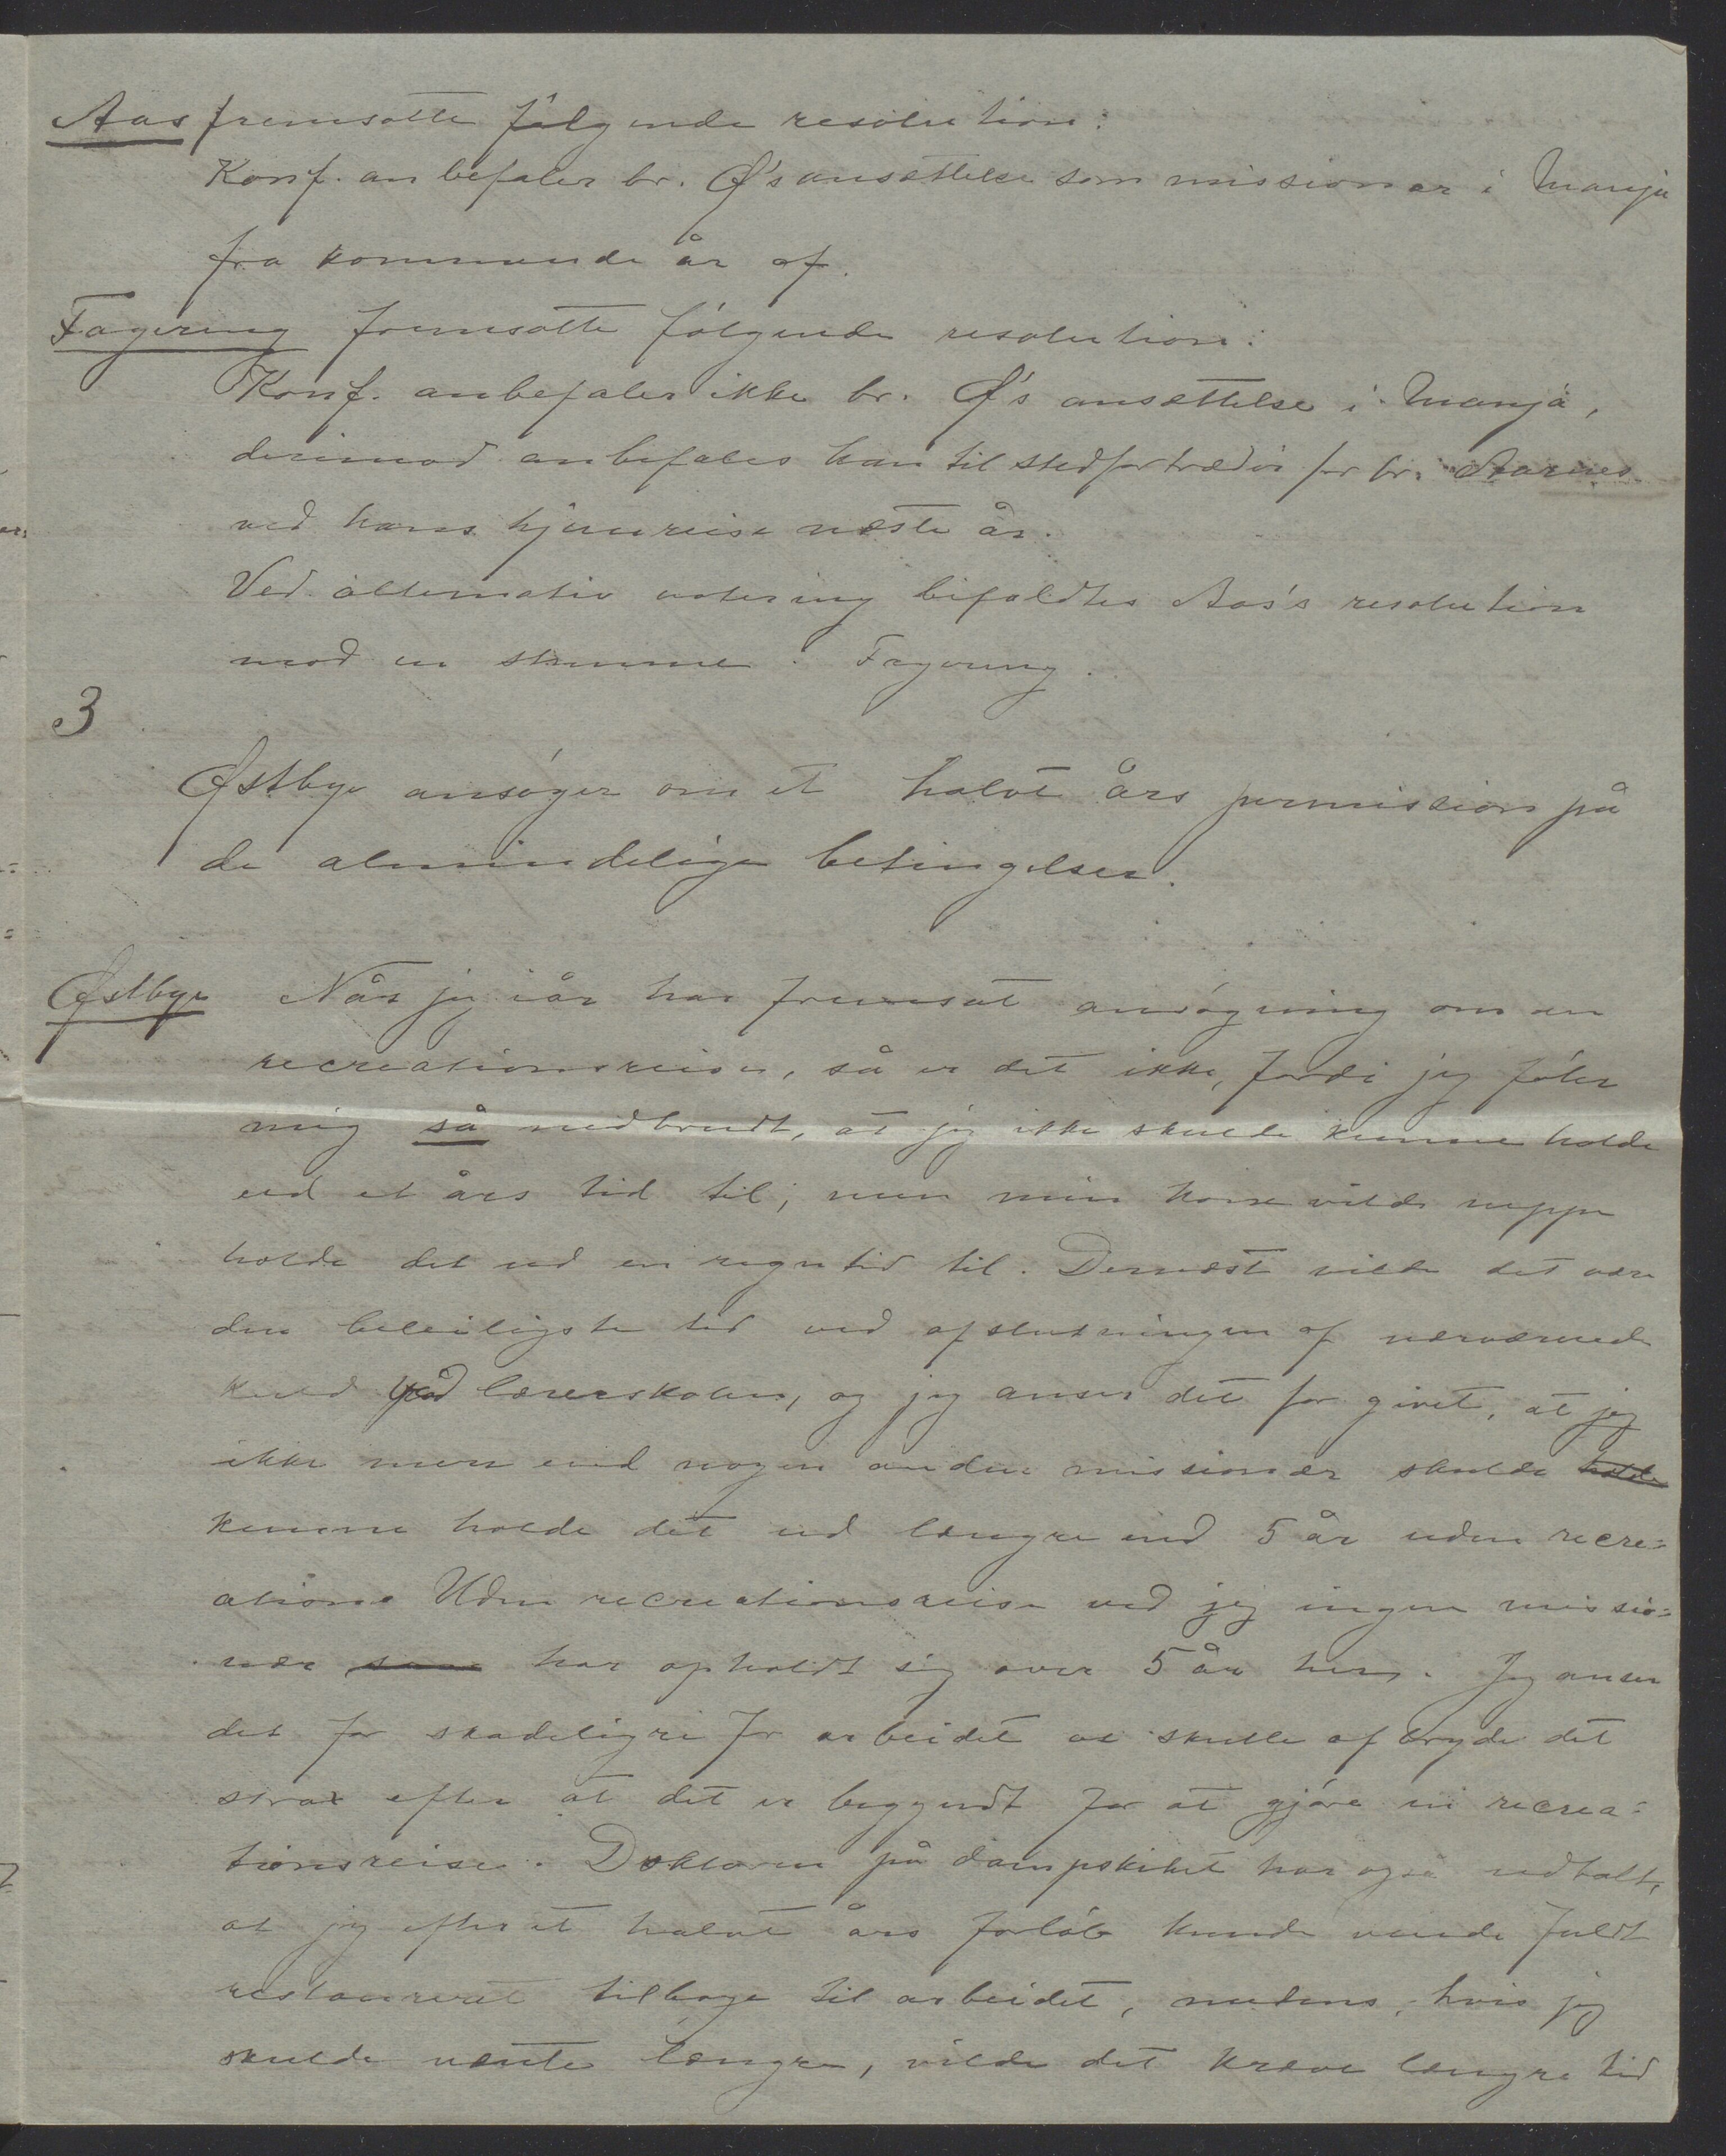 Aas fremsatte følgende resolution:
Konf. anbefaler br. Ø's ansættelse som missionær i Manja
fra kommende år af.
Fagereng fremsatte følgende resolution:
Konf. anbefaler ikke br. Ø's ansættelse i Manja,
derimod anbefales han til stedfortræder for br. Aarnes
ved hans hjemreise næste år.
Ved alternativ votering bifaldtes Aas's resolution
mod en stemme: Fagereng.
3
Østbye ansøger om et halvt års permission på
de almindelige betingelser.
Østbye Når jeg iår har fremsat ansøgning om en
recreationsreise, så er det ikke, fordi jeg føler
mig så nedbrudt, at jeg ikke skulde kunne holde
ud et års tid til; men min kone vilde neppe
holde det ud en regntid til. Dernæst vilde det være
den beleiligste tid ved afslutningen af nærværende
kuld på lærerskolen, og jeg anser det for givet, at jeg
ikke mere end nogen anden missionær skulde holde
kunne holde det ud længre end 5 år uden recre=
ation. Uden recreationsreise ved jeg ingen missio=
nær som har opholdt sig over 5 år her. Jeg anser
det for skadeligre for arbeidet at skulle afbryde det
strax efter at det er begyndt for at gjøre en recrea=
tionsreise. Doktoren på dampskibet har også udtalt,
at jeg efter et halvt års forløb kunde vende fuldt
restaureret tilbage til arbeidet, medens, hvis jeg
skulde vente længre, vilde det kræve længre tid